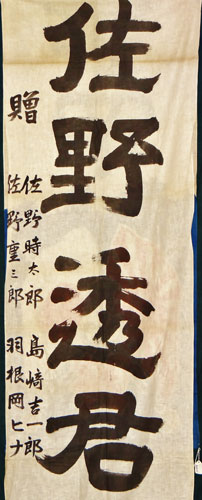 佐野透君
贈
佐野時太郎 島﨑吉一郎
佐野重三郎 羽根岡ヒナ